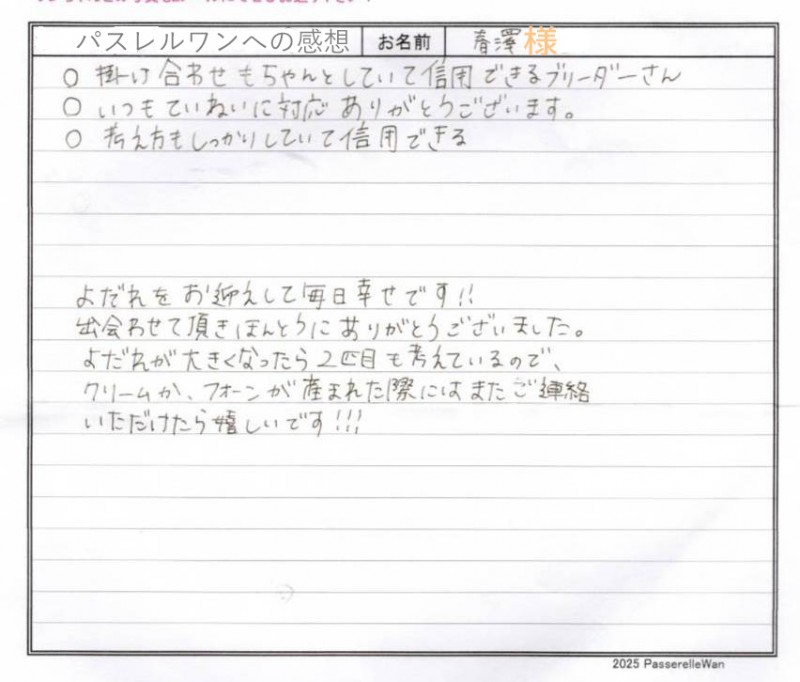 パスレルワンへの感想 お名前 春澤様
○ 掛け合わせもちゃんとしていて信用できるブリーダーさん
○ いつもていねいに対応ありがとうございます。
○ 考え方もしっかりしていて信用できる
よだれをお迎えして毎日幸せです!!
出会わせて頂きほんとうにありがとうございました。
よだれが大きくなったら2匹目も考えているので、
クリームか、フォーンが産まれた際にはまたご連絡
いただけたら嬉しいです!!!
2025 PasserelleWan